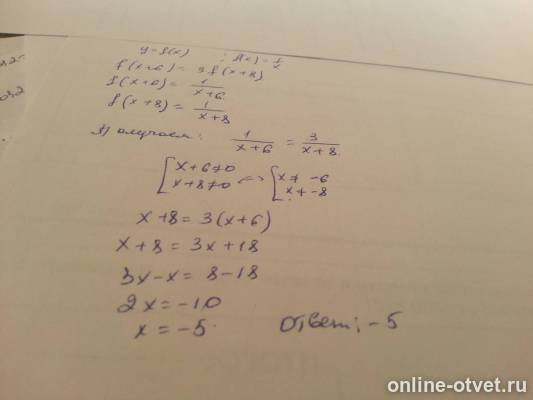 y = f(x) ; f(x) = 1/x
f(x+6) = 3f(x+8)
f(x+6) = 1/(x+6)
f(x+8) = 1/(x+8)
Получаем: 1/(x+6) = 3/(x+8)
[x+6≠0 <=> [x ≠ -6
x+8≠0 x ≠ -8
x+8 = 3(x+6)
x+8 = 3x+18
3x-x = 8-18
2x = -10
x = -5. Ответ: -5
online-otvet.ru